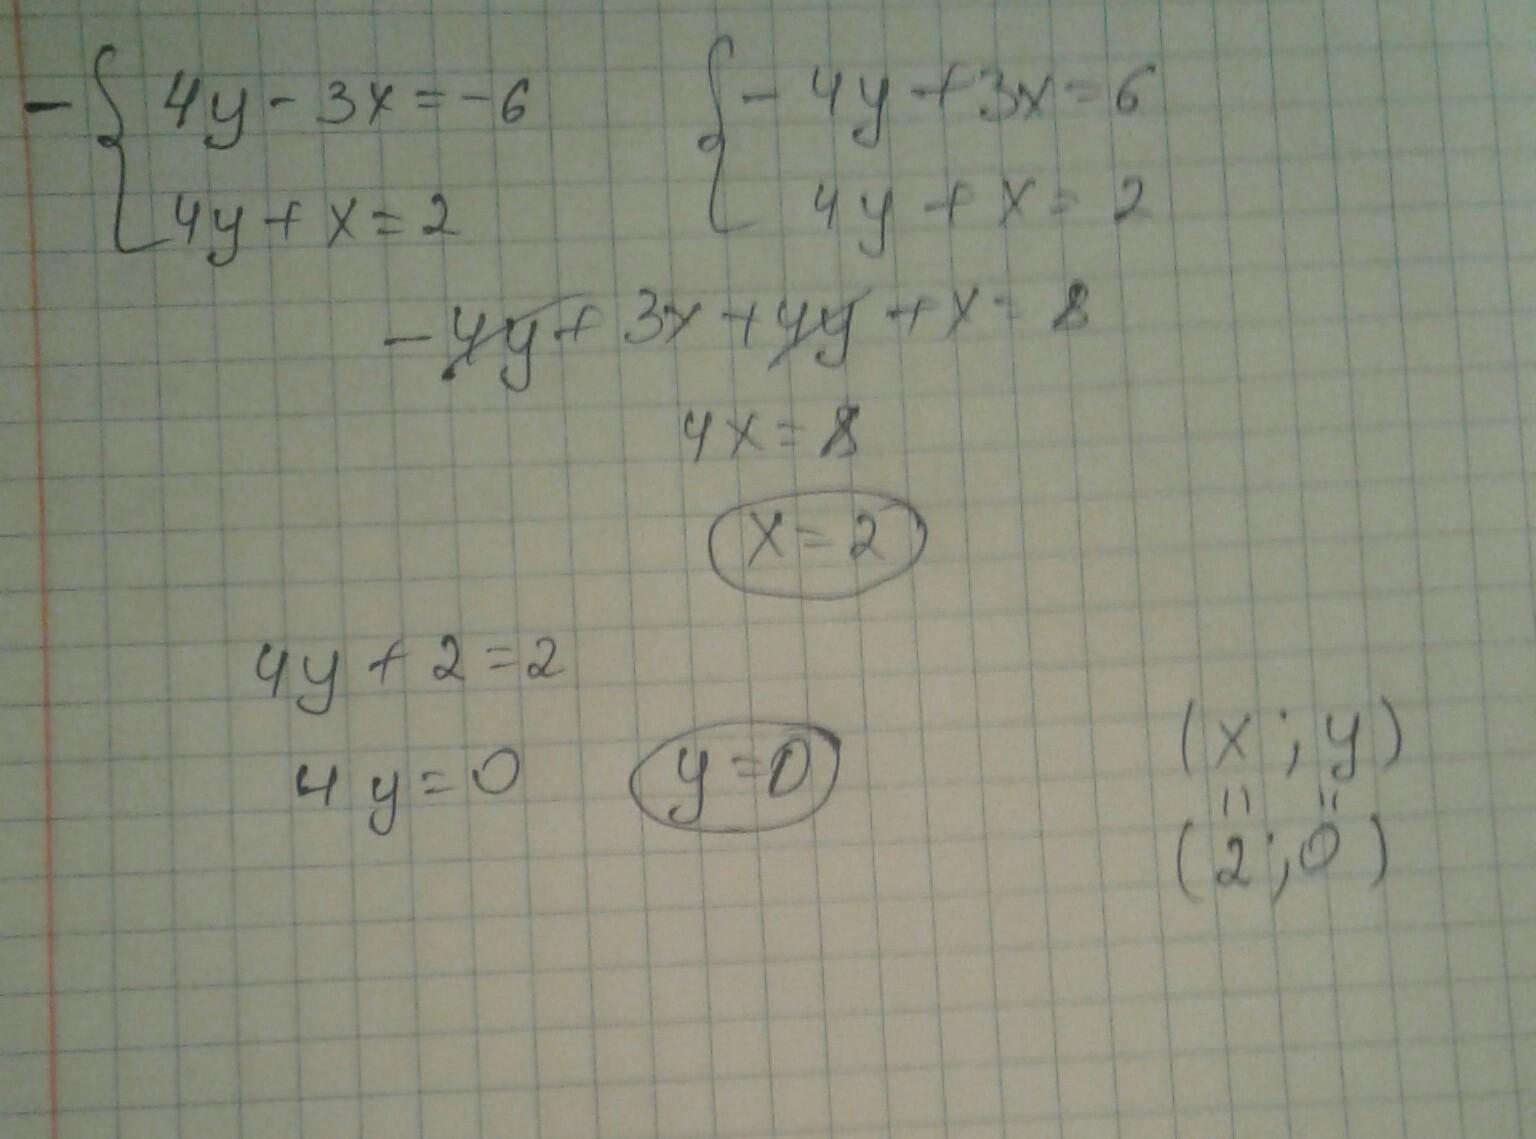 - { 4y - 3x = -6
4y + x = 2
{ - 4y + 3x = 6
4y + x = 2
- 4y + 3x + 4y + x = 8
4x = 8
x = 2
4y + 2 = 2
4y = 0 y = 0
(x ; y)
= =
(2 ; 0)